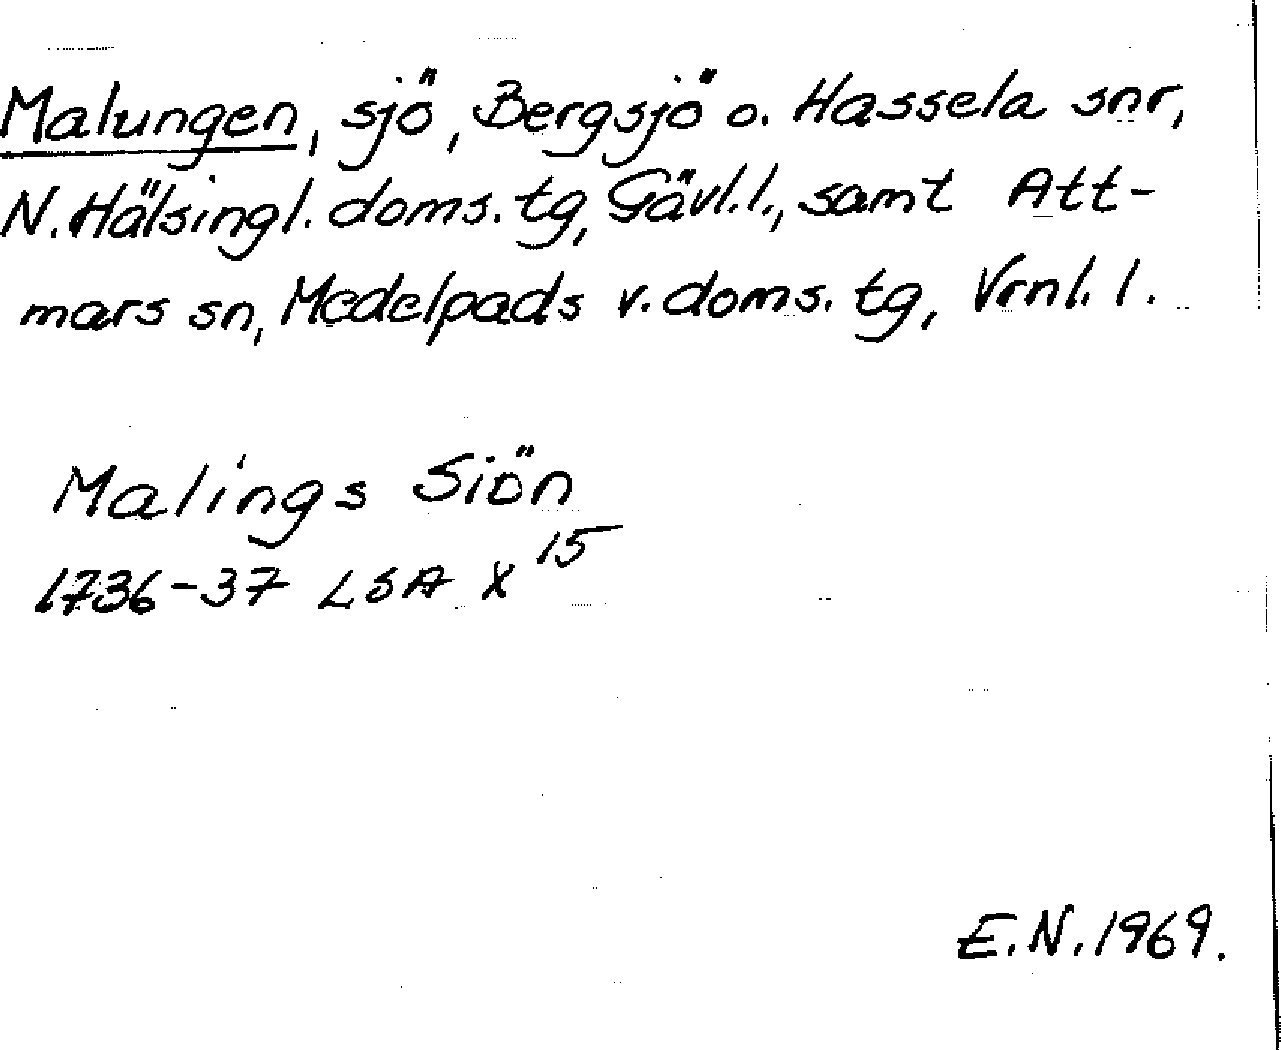 Malungen, sjö, Bergsjö o. Hassela snr,
N. Hälsingl. doms. tg, Gävl.l., samt Att-
mars sn, Medelpads v. doms. tg, Vrnl. l.
Malings Siön
1736-37 LSA X 15
E.N. 1969.